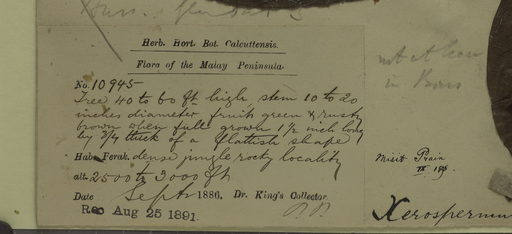 Herb. Hort. Bot. Calcuttensis.
Flora of the Malay Peninsula.
No. 10945
Tree 40 to 60 ft high, stem 10 to 20
inches diameter, fruit green & rusty
brown when full grown 1 1/2 inch long
by 3/4 thick of a flattish shape
Hab. Perak. dense jungle rocky locality
alt. 2500 to 3000 ft
Date Sept 1886, Dr. King's Collector.
Rec Aug 25 1891.
not
in
Misit Prain
Xerospermum